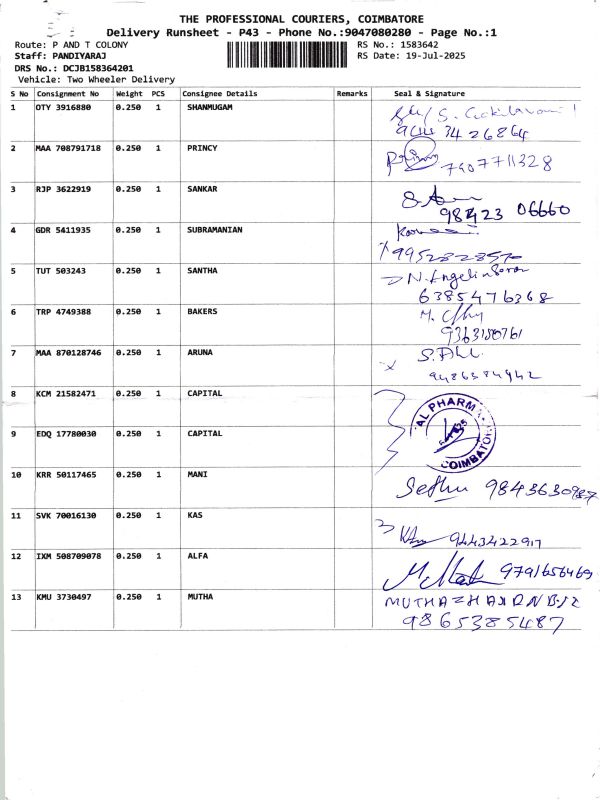 THE PROFESSIONAL COURIERS, COIMBATORE
Delivery Runsheet - P43 - Phone No.:9047080280 - Page No.:1
Route: P AND T COLONY
RS No.: 1583642
Staff: PANDIYARAJ
RS Date: 19-Jul-2025
DRS No.: DCJB158364201
Vehicle: Two Wheeler Delivery
S No Consignment No Weight PCS Consignee Details Remarks Seal & Signature
1 OTY 3916880 0.250 1 SHANMUGAM
2 MAA 708791718 0.250 1 PRINCY
7907711328
3 RJP 3622919 0.250 1 SANKAR
98423 06660
4 GDR 5411935 0.250 1 SUBRAMANIAN
5 TUT 503243 0.250 1 SANTHA
6385476368
6 TRP 4749388 0.250 1 BAKERS
7 MAA 870128746 0.250 1 ARUNA
9486384942
8 KCM 21582471 0.250 1 CAPITAL
AL PHARM
9 EDQ 17780030 0.250 1 CAPITAL
COIMBATO
10 KRR 50117465 0.250 1 MANI
Sethu 9843630987
11 SVK 70016130 0.250 1 KAS
9443422917
12 IXM 508709078 0.250 1 ALFA
9791656469
13 KMU 3730497 0.250 1 MUTHA
9865385487